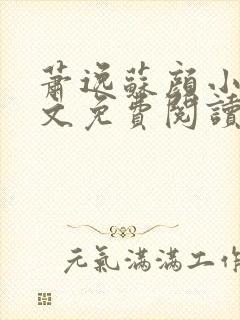 蕭逸蘇顔小
文免費閱讀
元氣滿滿工作